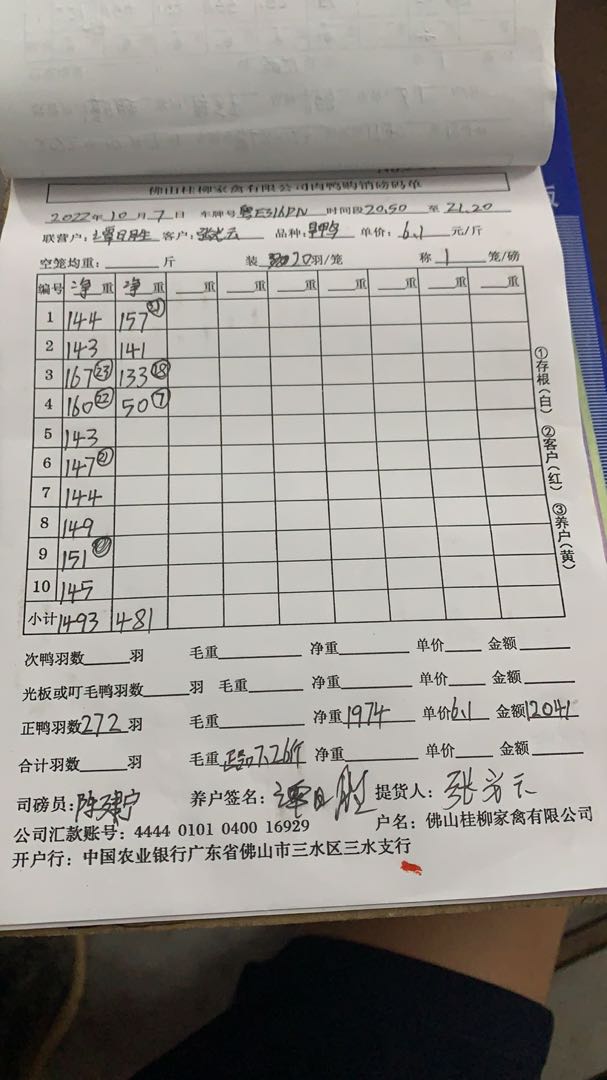 佛山桂柳家禽有限公司肉鸭购销磅码单
2022年10月7日 车牌号粤E316PN 时间段20.50 至 21.20
联营户: 谭日胜 客户: 张光云 品种: 单价: 6.1 元/斤
空笼均重: 斤 装 20羽/笼 称 1 笼/磅
编号 净重 净重 重 重 重 重 重 重 重
1 144 157 ㉑
2 143 141
3 167 ㉓ 133 ⑱
4 160 ㉒ 50 ⑦
5 143
6 147 ㉑
7 144
8 149
9 151
10 145
小计 1493 481
①存根(白) ②客户(红) ③养户(黄)
次鸭羽数 羽 毛重 净重 单价 金额
光板或叮毛鸭羽数 羽 毛重 净重 单价 金额
正鸭羽数272羽 毛重 净重1974 单价6.1 金额12041
合计羽数 羽 毛重 7.26斤 净重 单价 金额
司磅员: 养户签名: 谭日胜 提货人: 张光云
公司汇款账号: 4444 0101 0400 16929 户名: 佛山桂柳家禽有限公司
开户行: 中国农业银行广东省佛山市三水区三水支行